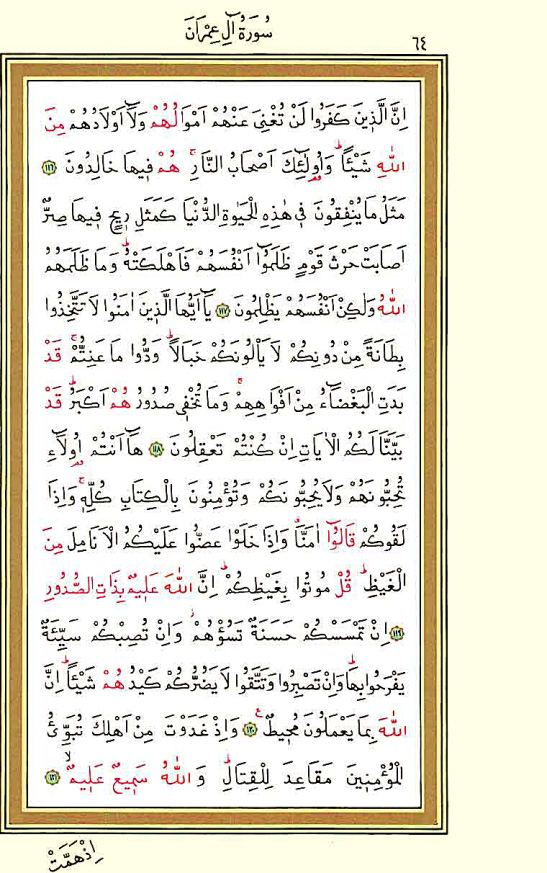 سُورَةُ آلِ عِمْرٰانَ
٦٤
اِنَّ الَّذٖينَ كَفَرُوا لَنْ تُغْنِىَ عَنْهُمْ اَمْوَالُهُمْ وَلَٓا اَوْلَادُهُمْ مِنَ
اللّٰهِ شَيْـًٔاؕ وَاُو۬لٰٓئِكَ اَصْحَابُ النَّارِۚ هُمْ فٖيهَا خَالِدُونَ ﴿١١٦﴾
مَثَلُ مَا يُنْفِقُونَ فٖى هٰذِهِ الْحَيٰوةِ الدُّنْيَا كَمَثَلِ رٖيحٍ فٖيهَا صِرٌّ
اَصَابَتْ حَرْثَ قَوْمٍ ظَلَمُٓوا اَنْفُسَهُمْ فَاَهْلَكَتْهُؕ وَمَا ظَلَمَهُمُ
اللّٰهُ وَلٰكِنْ اَنْفُسَهُمْ يَظْلِمُونَ ﴿١١٧﴾ يَٓا اَيُّهَا الَّذٖينَ اٰمَنُوا لَا تَتَّخِذُوا
بِطَانَةً مِنْ دُونِكُمْ لَا يَاْلُونَكُمْ خَبَالًاؕ وَدُّوا مَا عَنِتُّمْۚ قَدْ
بَدَتِ الْبَغْضَٓاءُ مِنْ اَفْوَاهِهِمْۚ وَمَا تُخْفٖى صُدُورُهُمْ اَكْبَرُؕ قَدْ
بَيَّنَّا لَكُمُ الْاٰيَاتِ اِنْ كُنْتُمْ تَعْقِلُونَ ﴿١١٨﴾ هَٓا اَنْتُمْ اُو۬لَٓاءِ
تُحِبُّونَهُمْ وَلَا يُحِبُّونَكُمْ وَتُؤْمِنُونَ بِالْكِتَابِ كُلِّهٖۚ وَاِذَا
لَقُوكُمْ قَالُٓوا اٰمَنَّاۗ وَاِذَا خَلَوْا عَضُّوا عَلَيْكُمُ الْاَنَامِلَ مِنَ
الْغَيْظِؕ قُلْ مُوتُوا بِغَيْظِكُمْؕ اِنَّ اللّٰهَ عَلٖيمٌ بِذَاتِ الصُّدُورِ
﴿١١٩﴾ اِنْ تَمْسَسْكُمْ حَسَنَةٌ تَسُؤْهُمْؗ وَاِنْ تُصِبْكُمْ سَيِّئَةٌ
يَفْرَحُوا بِهَاؕ وَاِنْ تَصْبِرُوا وَتَتَّقُوا لَا يَضُرُّكُمْ كَيْدُهُمْ شَيْـًٔاؕ اِنَّ
اللّٰهَ بِمَا يَعْمَلُونَ مُحٖيطٌࣖ ﴿١٢٠﴾ وَاِذْ غَدَوْتَ مِنْ اَهْلِكَ تُبَوِّئُ
الْمُؤْمِنٖينَ مَقَاعِدَ لِلْقِتَالِؕ وَاللّٰهُ سَمٖيعٌ عَلٖيمٌۙ ﴿١٢١﴾
اِذْ هَمَّتْ